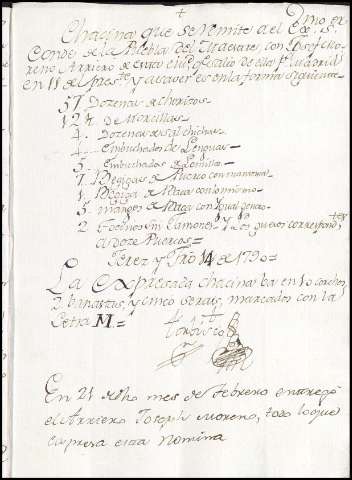 +
Chacina que se Remite al Exmo. Sr.
Conde de la Puebla del Maestre, con Joseph Mo-
reno Arriero de esta que salio de ella Para Madrid
en 11 del prese. y a saver es en la forma siguiente
57. Dozenas de chorizos
12 de Morcillas
4. Dozenas de salchichas
4. Embuchados de Lenguas
5. Embuchados de Lomillos
7. Begigas de Puerco con manteca
1. Begiga de Baca con lo mismo
5. mangos de Baca con igual genero
2. Tocinos sin Jamones, y los quesos correspond.tes
a doze Puercos=
Xerez y Fro. 14 de 1790=
La expresada chacina ba en 10 corchos,
2 banastas, y cinco seras, marcados con la
Letra M.=
En 21 dho mes de Febrero entregó
el Arriero Joseph Moreno, todo lo que
expresa esta nomina